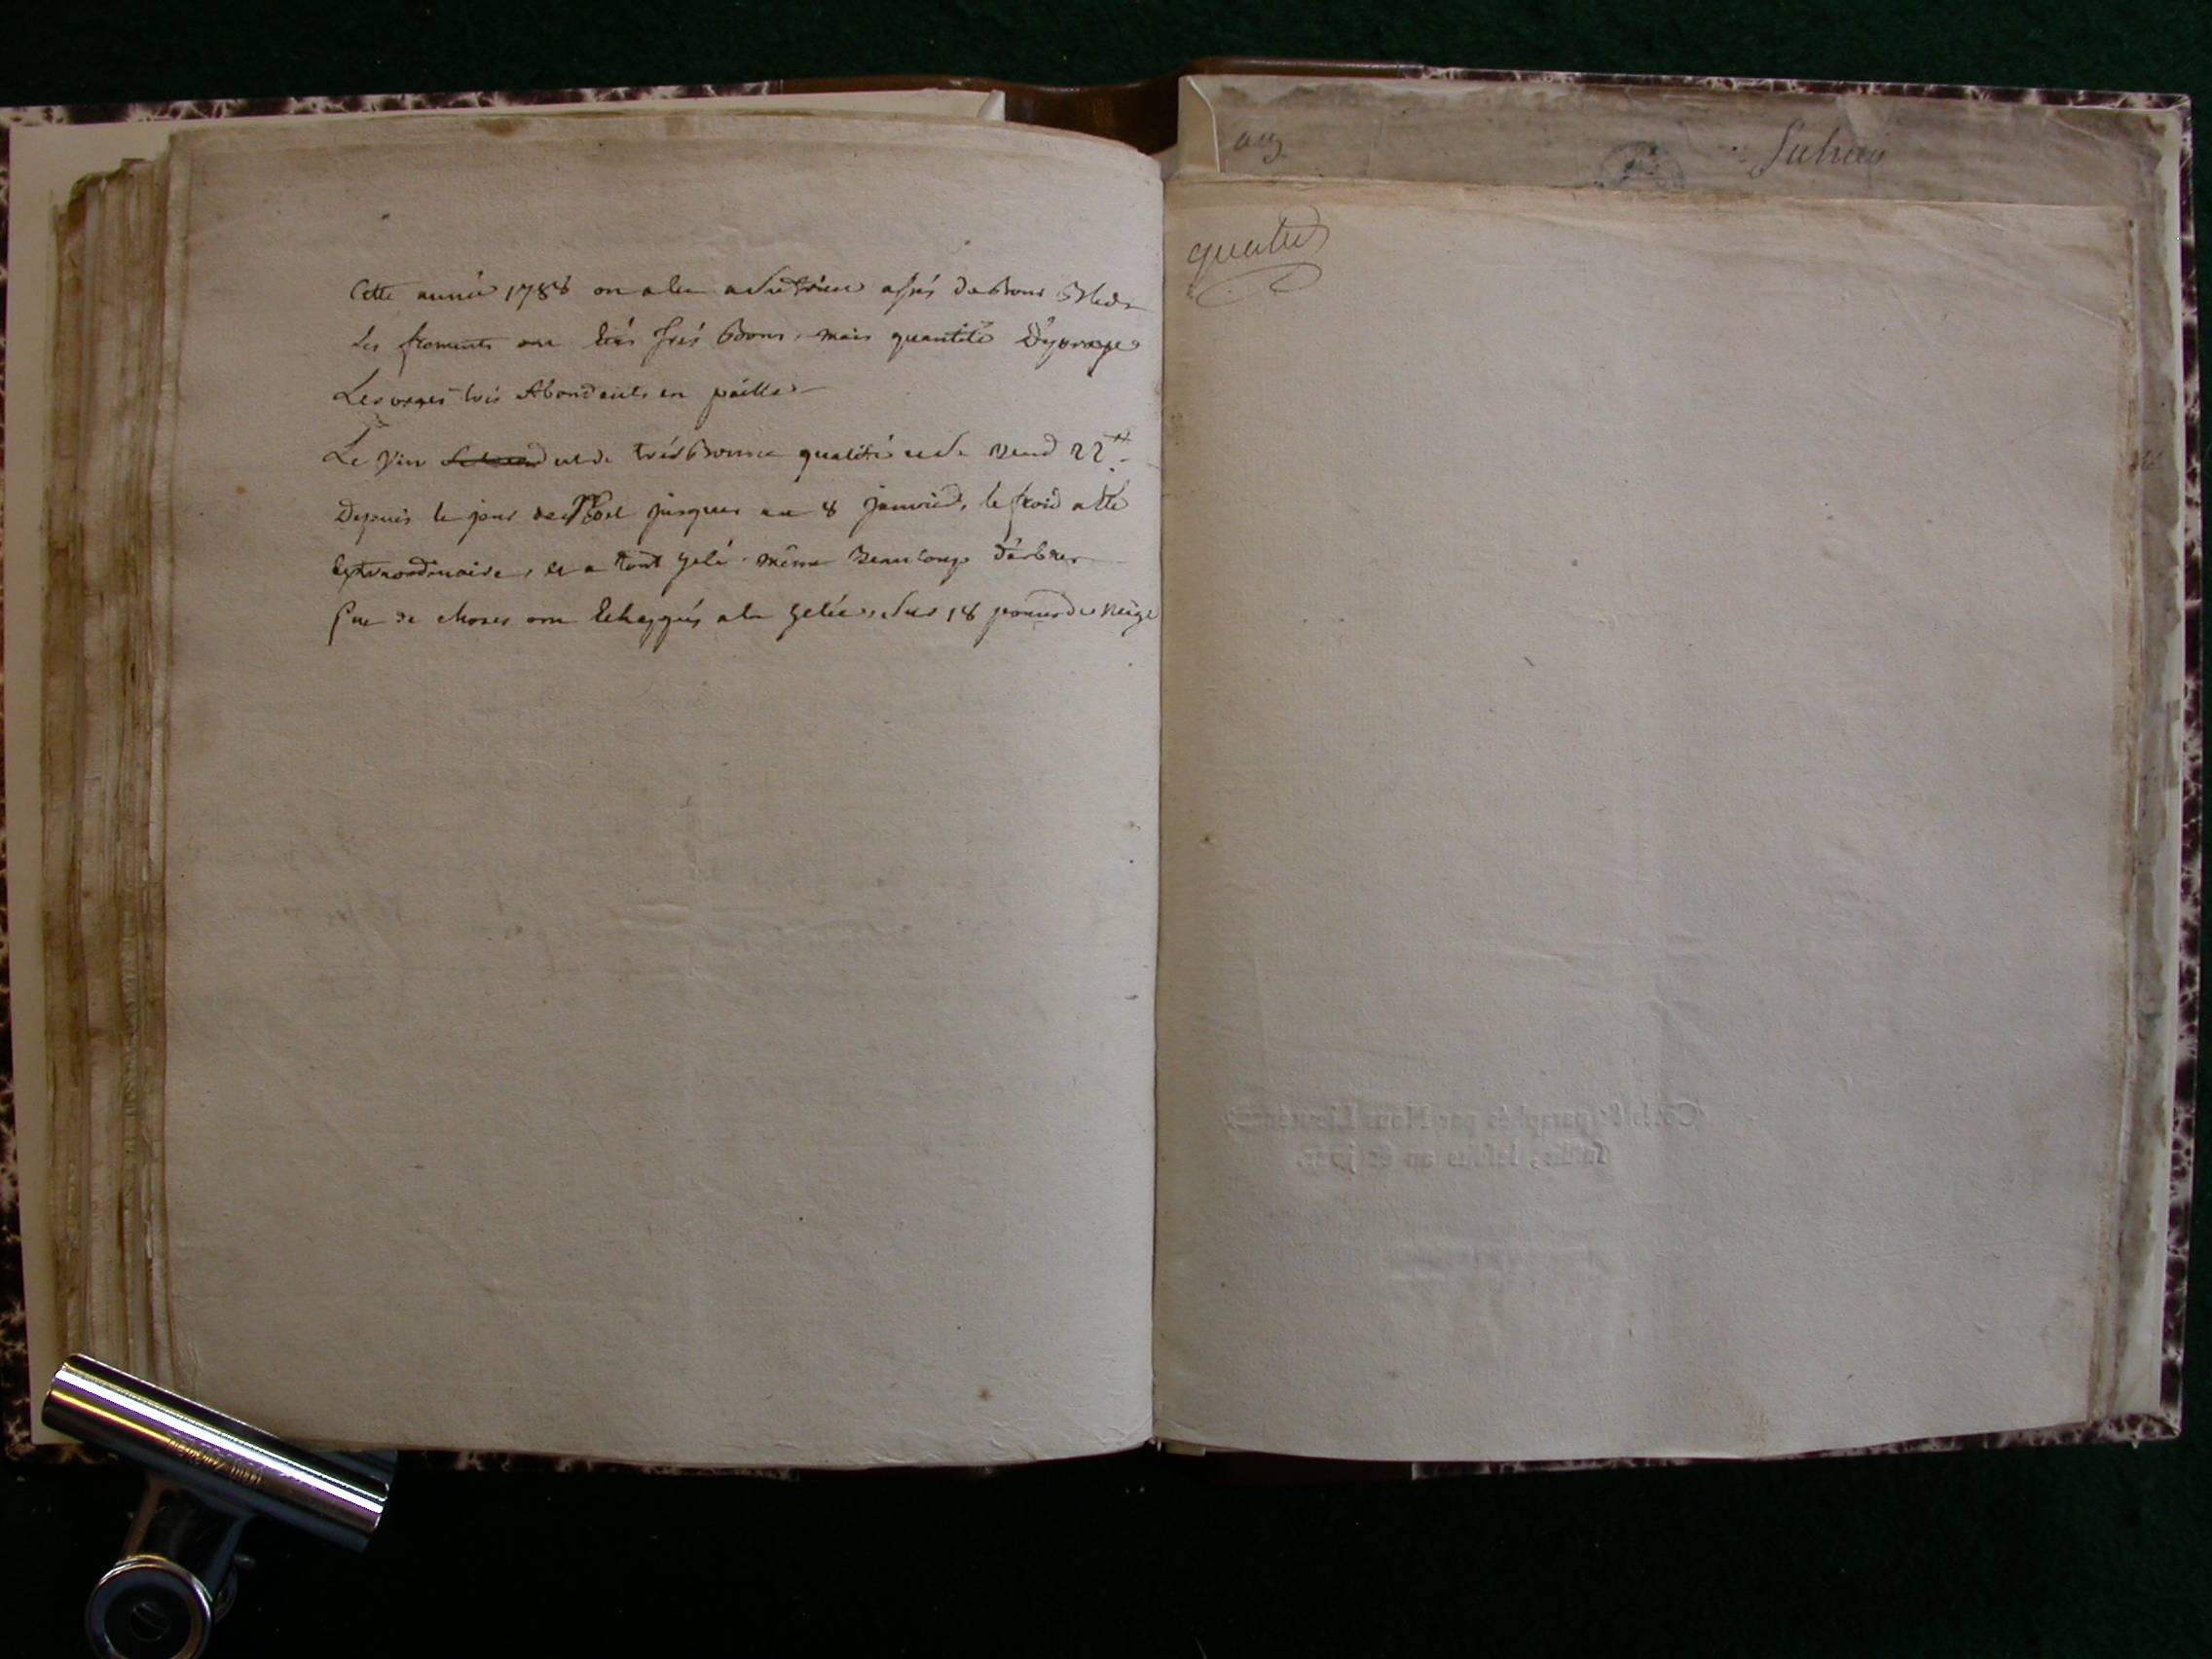 Cette année 1788 on a Eu a Sutrieu assés de Bons Bleds
Les froments on Etés très Bons, mais quantité D'yvraye
Les orges très Abondants en paille
Le Vin est de très Bonne qualité et se Vend 22 ₶
Depuis le jour de Noel jusques au 8 janvier, le froid a Eté
Extraordinaire, et a tout gelé même Beaucoup d'arbres
peu de choses on Echappés a la gelée, sur 18 pouces de Neige
quatre
Cotté & paraphés par Nous Lieutenant